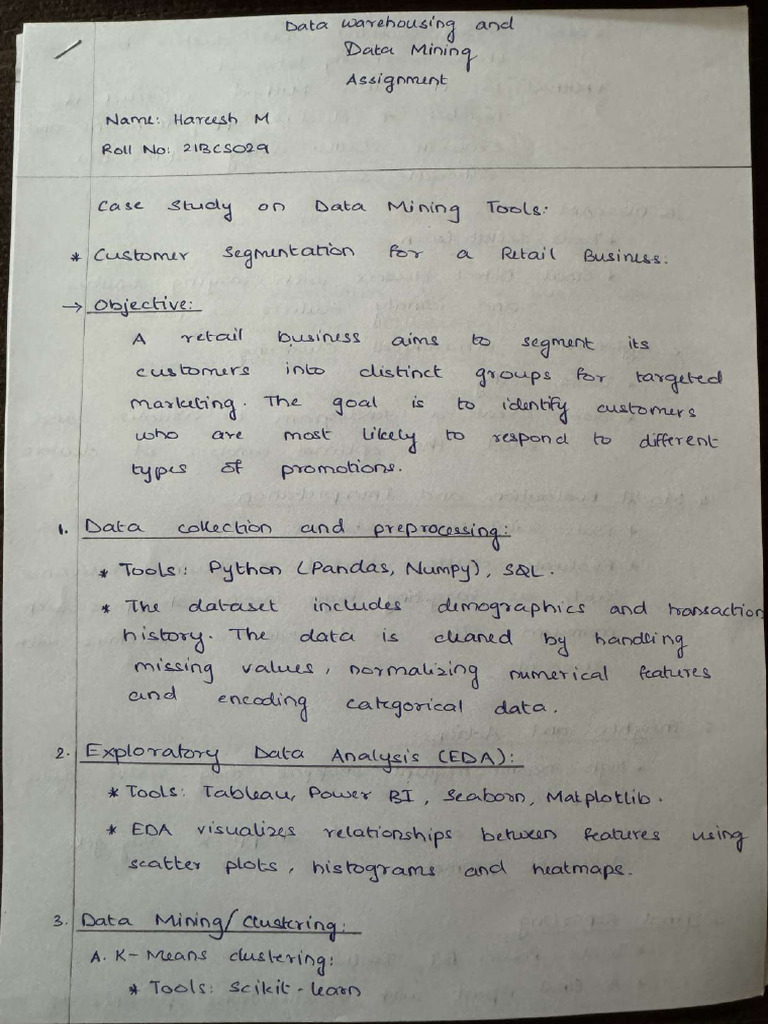 Data warehousing and
Data Mining
Assignment
Name: Hareesh M
Roll No: 21BCS029
Case Study on Data Mining Tools:
* Customer Segmentation for a Retail Business.
→ Objective:
A retail business aims to segment its
customers into distinct groups for targeted
marketing. The goal is to identify customers
who are most likely to respond to different
types of promotions.
1. Data collection and preprocessing:
* Tools: Python (Pandas, Numpy), SQL.
* The dataset includes demographics and transaction
history. The data is cleaned by handling
missing values, normalizing numerical features
and encoding categorical data.
2. Exploratory Data Analysis (EDA):
* Tools: Tableau, Power BI, Seaborn, Matplotlib.
* EDA visualizes relationships between features using
scatter plots, histograms and heatmaps.
3. Data Mining/Clustering:
A. K-Means clustering:
* Tools: Scikit-learn